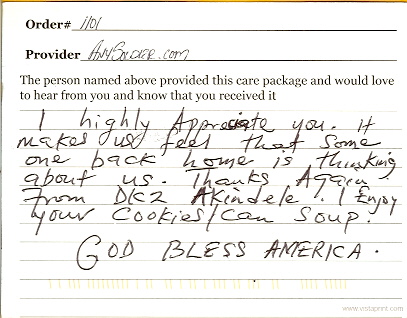 Order# 1101
Provider AnySoldier.com
The person named above provided this care package and would love
to hear from you and know that you received it
I highly Appreciate you. it
makes us feel that some
one back home is thinking
about us. Thanks Again
From DK2 Akindele. I Enjoy
your Cookies/Can Soup.
GOD BLESS AMERICA.
www.vistaprint.com